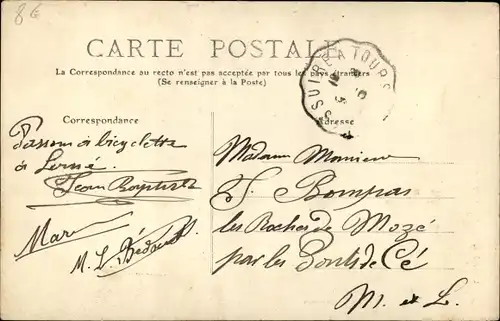 8 €
CARTE POSTALE
La Correspondance au recto n'est pas acceptée par tous les pays étrangers
(Se renseigner à la Poste)
SSUIRE A TOURS
Correspondance
Adresse
Passons à bicyclette
à Lerné.
Jean Baptiste
Marc
M. L. Bédouet
Madame Monsieur
J. Bompas
les Roches de Mozé
par les Ponts de Cé
M. et L.